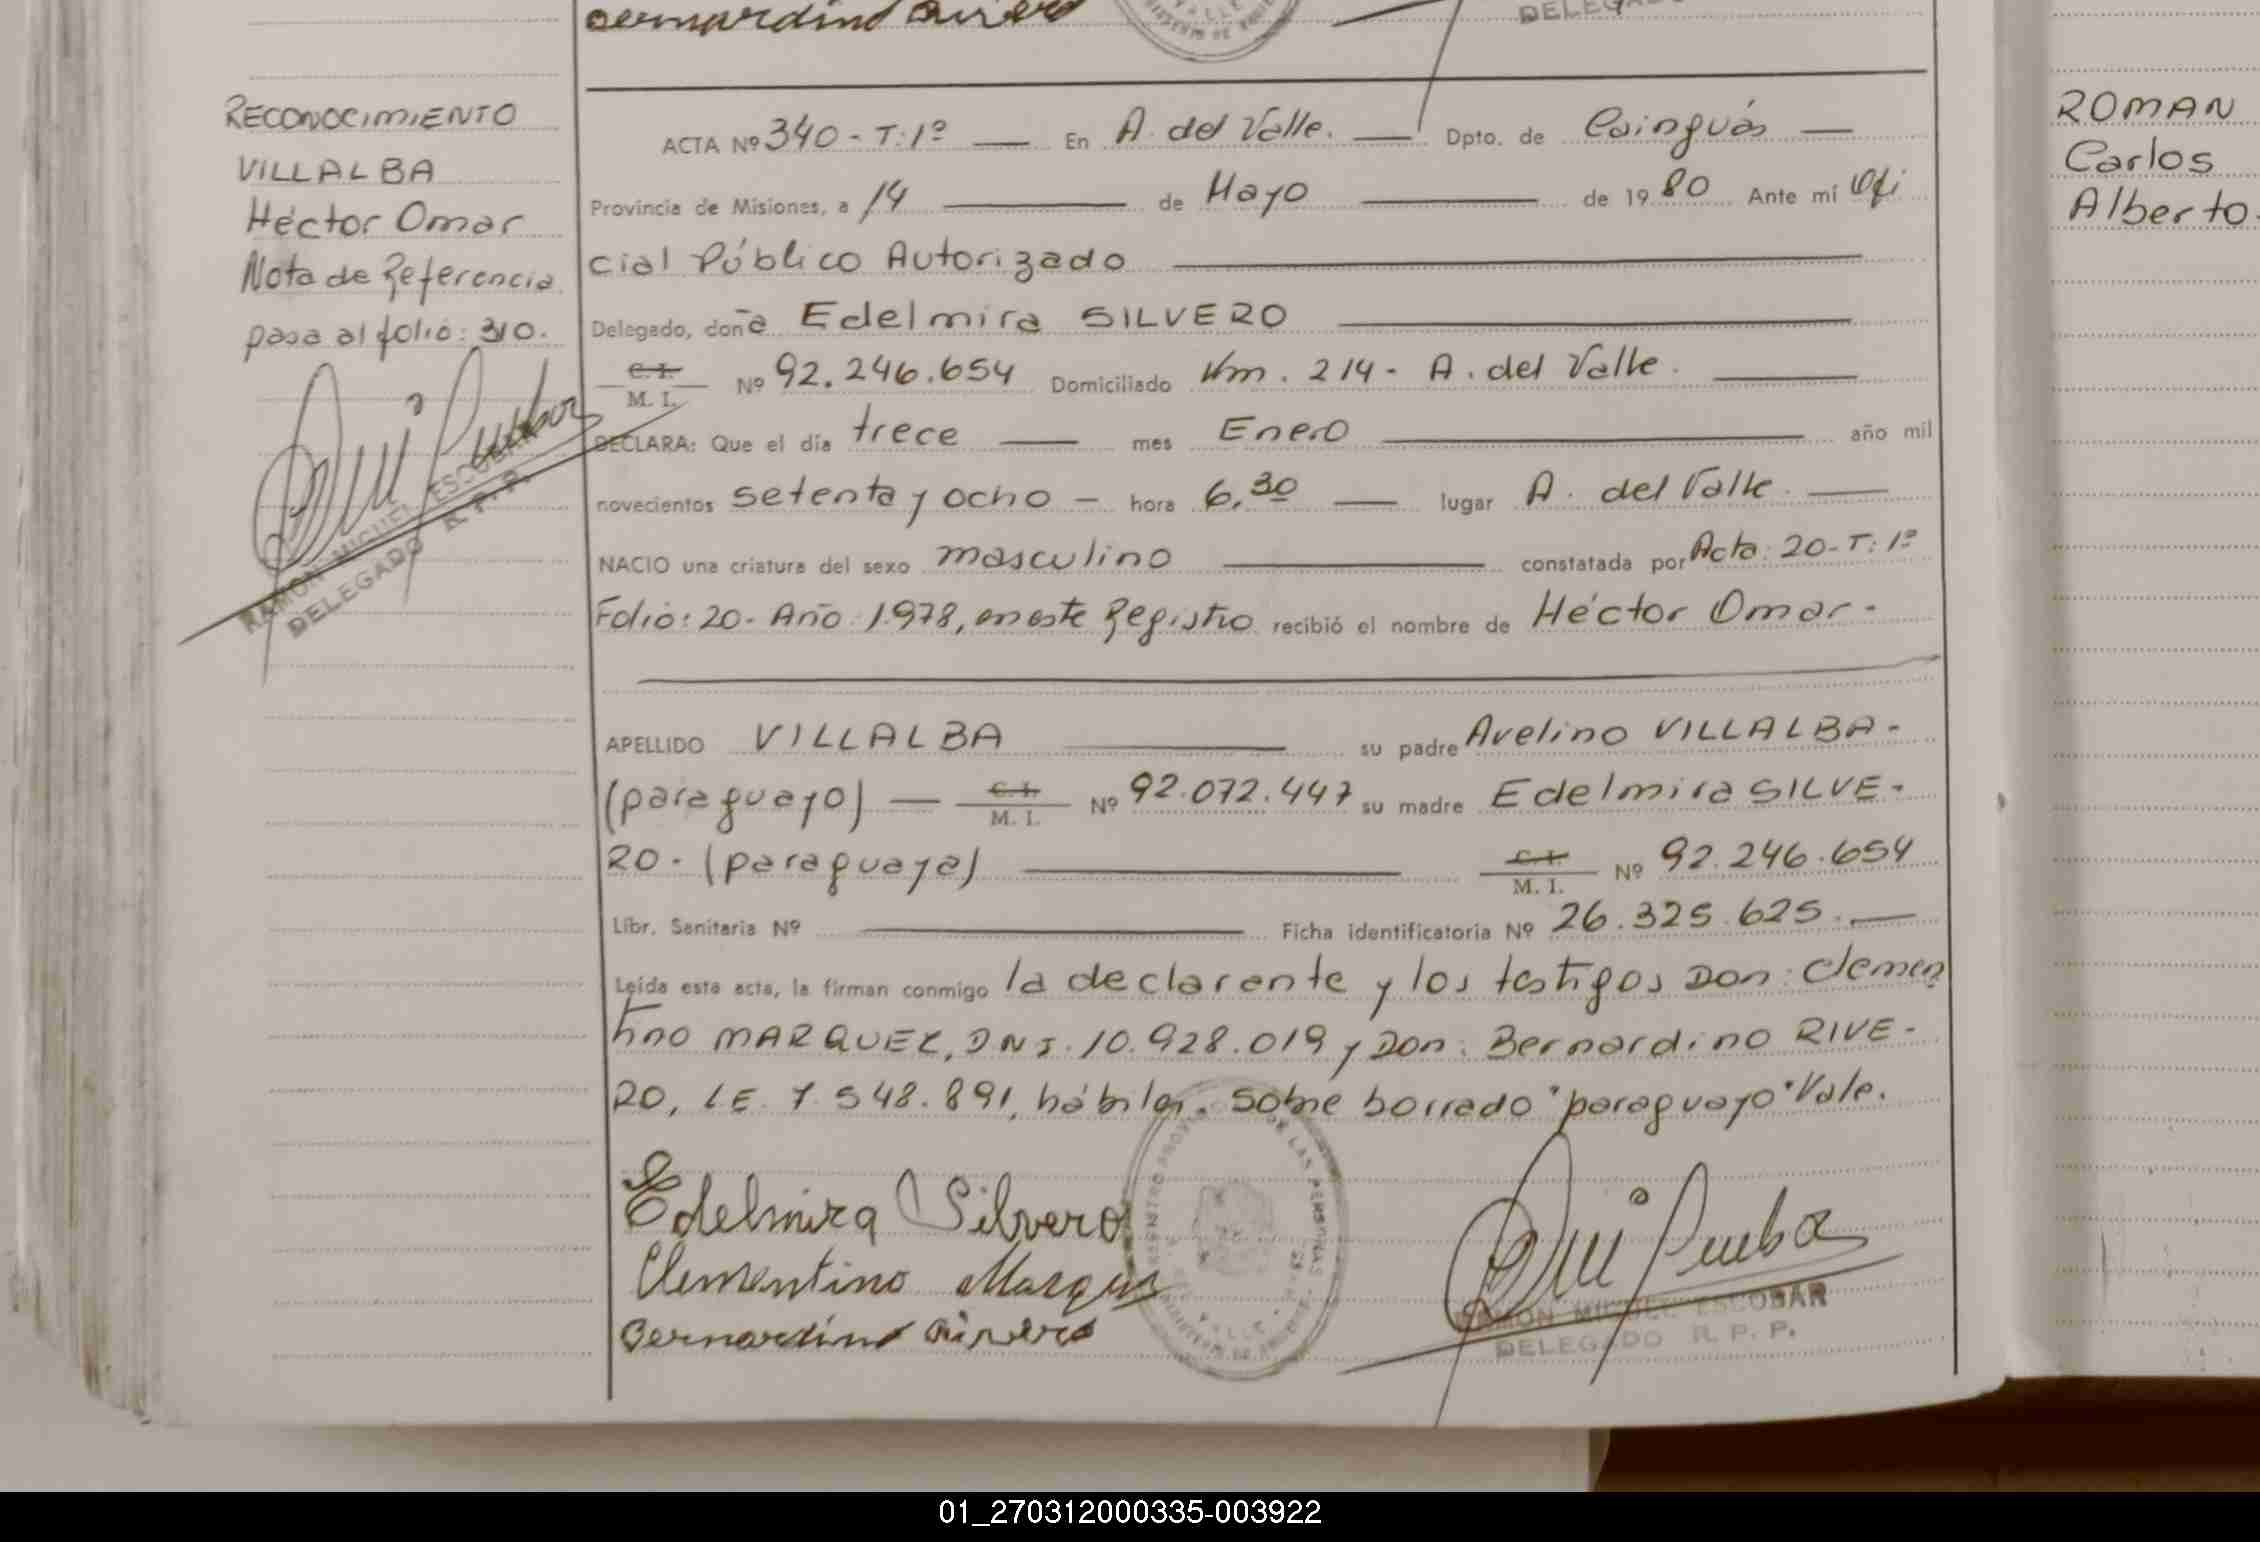 Bernardino Rivero
DELEGADO
RECONOCIMIENTO
VILLALBA
Héctor Omar
Nota de Referencia
pasa al folio: 310.
RAMON MIGUEL ESCOBAR
DELEGADO R. P. P.
ACTA Nº 340 - T: 1º — En A. del Valle. — Dpto. de Cainguás —
Provincia de Misiones, a 14 — de Mayo — de 19 80 Ante mí Ofi
cial Público Autorizado —
Delegado, doña Edelmira SILVERO —
C. I. M. I. Nº 92.246.654 Domiciliado Km. 214 - A. del Valle. —
DECLARA: Que el día trece — mes Enero — año mil
novecientos setenta y ocho — hora 6,30 — lugar A. del Valle. —
NACIO una criatura del sexo masculino — constatada por Acta: 20-T: 1º
Folio: 20- Año 1.978, en este Registro recibió el nombre de Héctor Omar -
APELLIDO VILLALBA — su padre Avelino VILLALBA -
(paraguayo) — C. I. M. I. Nº 92.072.447 su madre Edelmira SILVE-
RO - (paraguaya) — C. I. M. I. Nº 92.246.654
Libr. Sanitaria Nº — Ficha identificatoria Nº 26.325.625. —
Leída esta acta, la firman conmigo la declarante y los testigos Don: Clemen
tino MARQUEZ, DNI. 10.928.019 y Don: Bernardino RIVE-
RO, LE. 7.548.891, hábiles. Sobre borrado "paraguayo" Vale.
Edelmira Silvero
Clementino Marquez
Bernardino Rivero
RAMON MIGUEL ESCOBAR
DELEGADO R. P. P.
ROMAN
Carlos
Alberto.
01_270312000335-003922